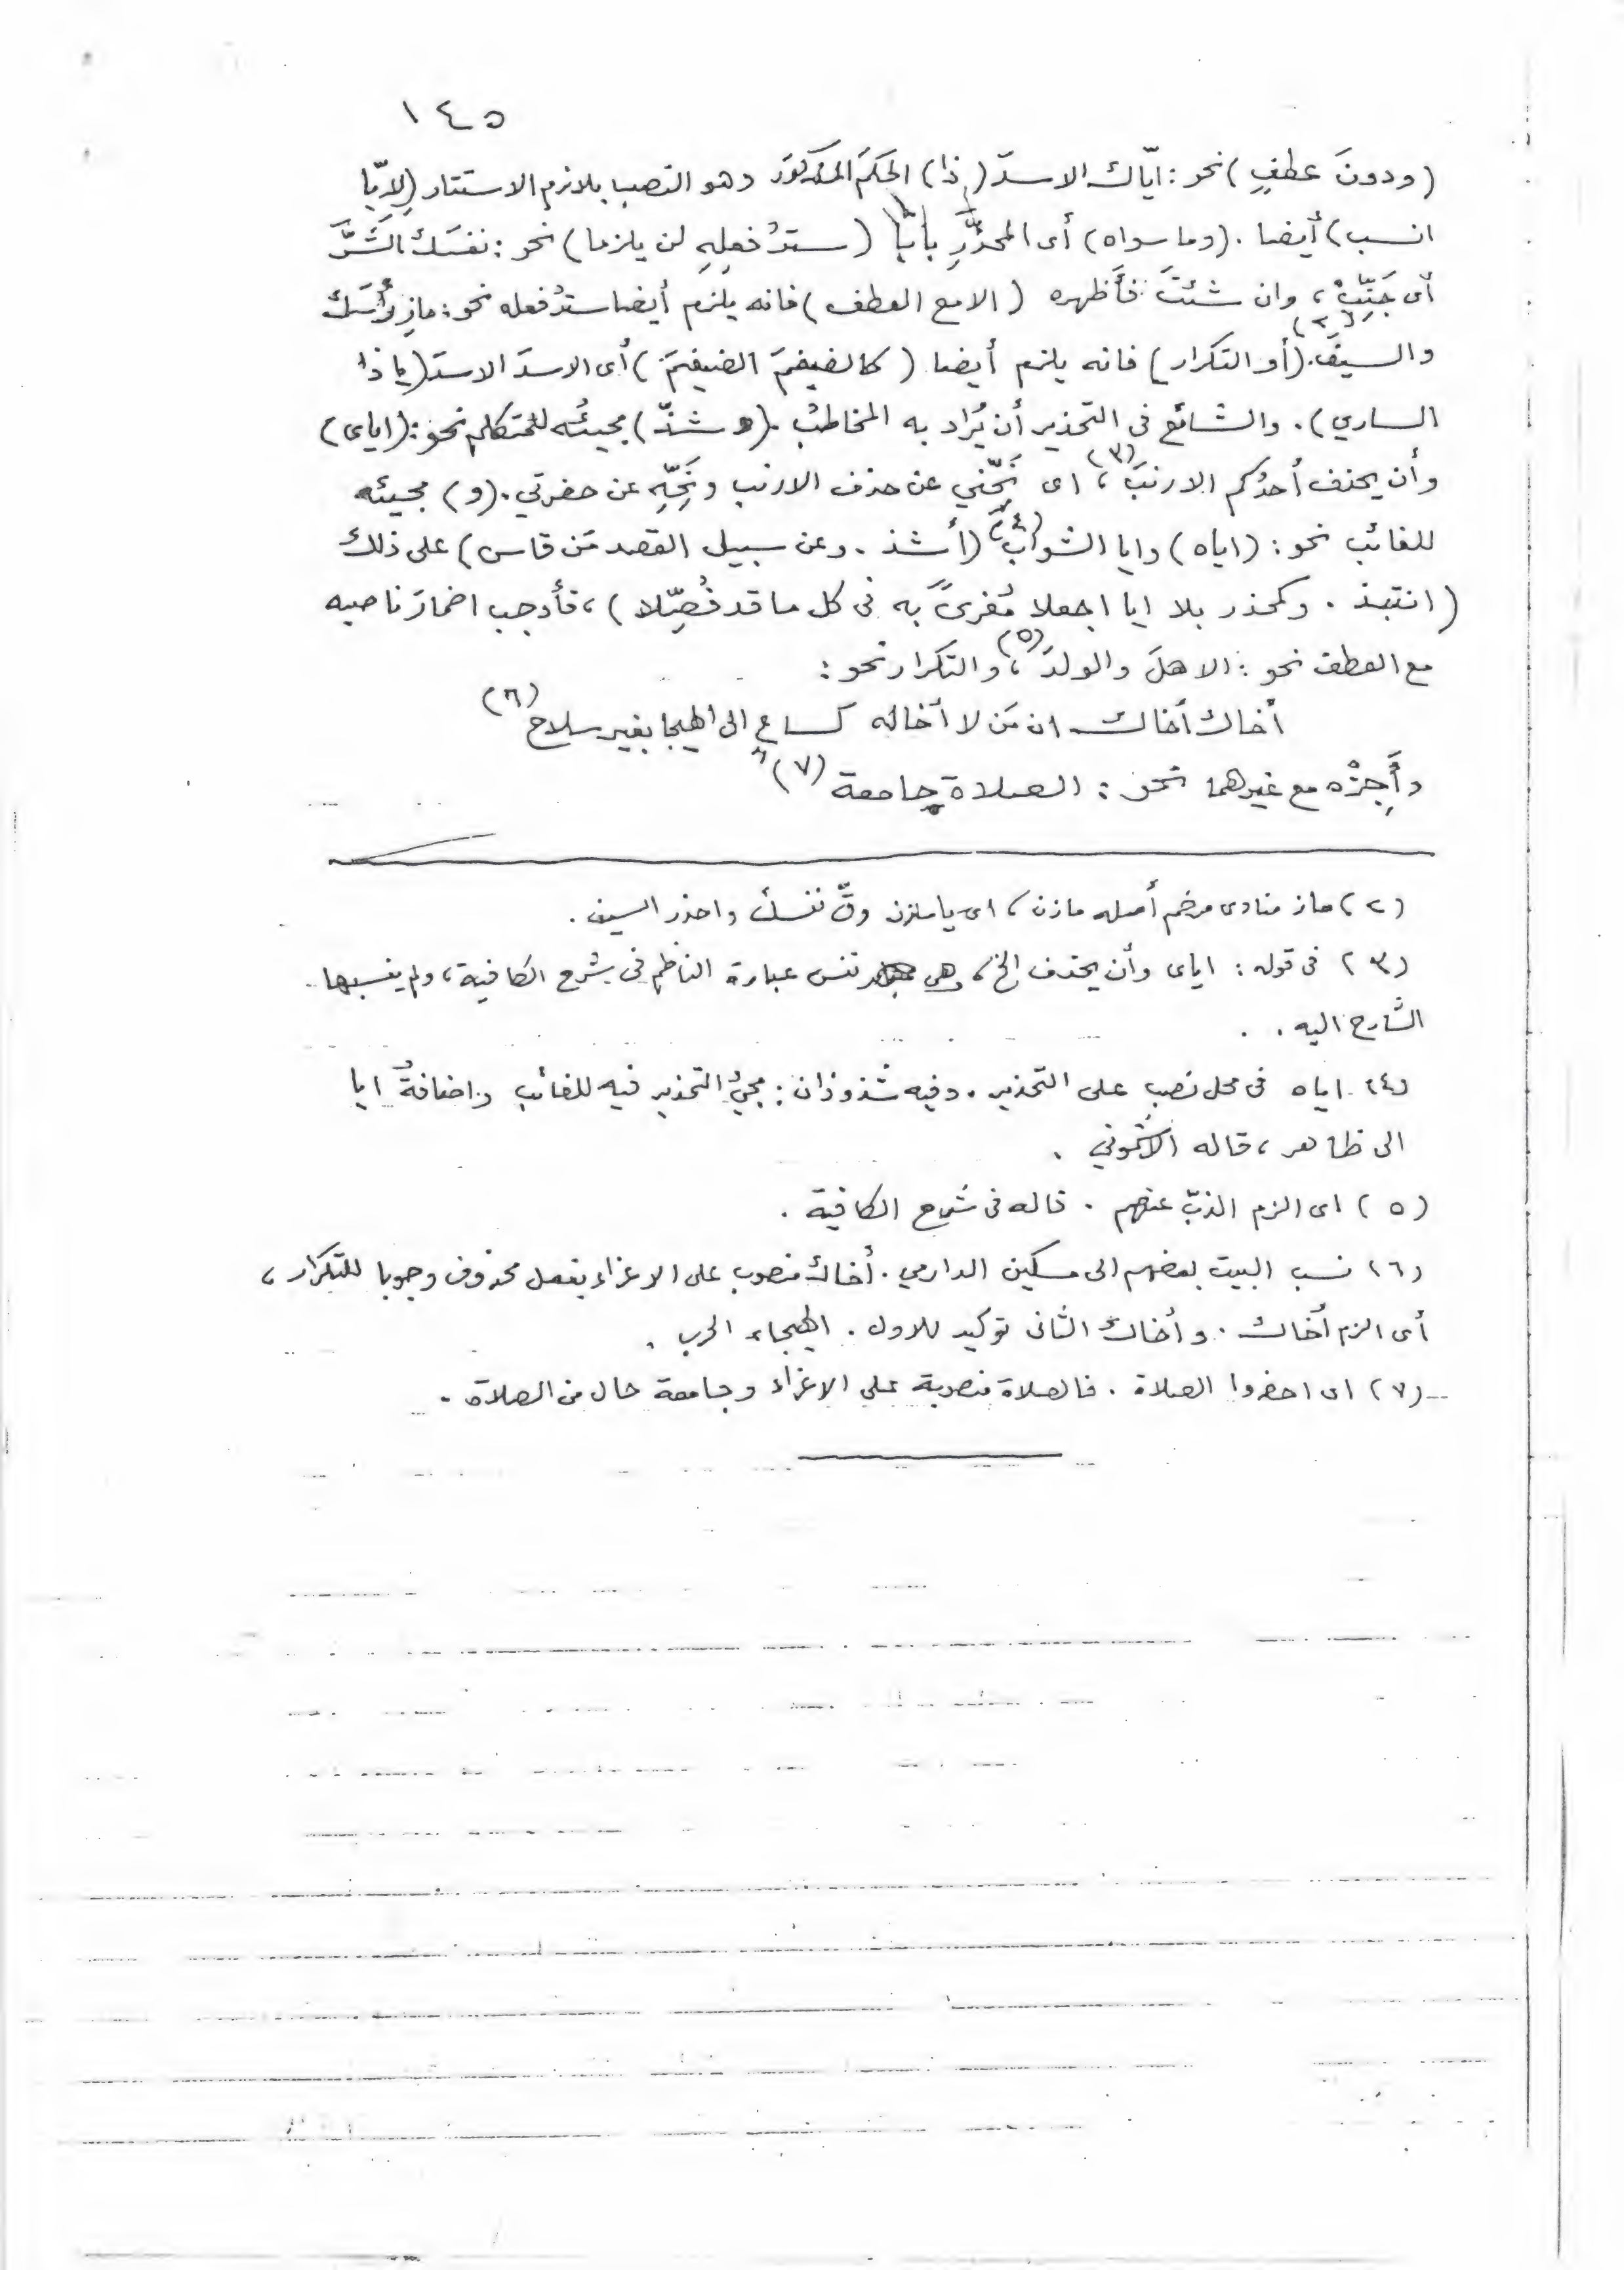 ١٤٥
(ودونَ عطفٍ) نحو: ايّاك الاسدَ (ذا) الحكمَ المذكورَ وهو النصب بلازم الاستتار (لايّا
انسب) أيضا. (وما سواه) أى المحذَّرِ بايّا (سترُ فعلِهِ لن يلزما) نحو: نفسَكَ الشَّرَّ
أى جَنِّبْ، وان شئتَ فأَظهره (الا مع العطف) فانه يلزم أيضا سترُ فعله نحو: مازِ رأسَكَ
والسيفَ (٢). (أو التكرار) فانه يلزم أيضا (كالضيغمَ الضيغمَ) أى الاسدَ الاسدَ (يا ذا
الساري). والشائع فى التحذير أن يُراد به المخاطبُ. (وشذّ) مجيئُه للمتكلم نحو: (اياى)
وأن يحذف أحدُكم الارنبَ (٣)، اى نَحّنى عن حذف الارنب ونَحِّهِ عن حضرتي. (و) مجيئه
للغائب نحو: (اياه) وايا الشوابّ (٤) (أشذ. وعن سبيل القصد مَن قاس) على ذلك
(انتبذ. وكمحذر بلا ايا اجعلا مُغرىً به فى كل ما قد فُصِّلا)، فأوجب اضمارَ ناصبه
مع العطف نحو: الاهلَ والولدَ (٥)، والتكرار نحو:
أخاك أخاك ان مَن لا أخا له كساعٍ الى الهيجا بغير سلاح (٦)
وأَجِزْه مع غيرهما نحو: الصلاةَ جامعة (٧)"
(٢) ماز منادى مرخم أصله مازن، اى يا مازن قِ نفسك واحذر السيف.
(٣) فى قوله: اياى وأن يحذف الخ، هى نفس عبارة الناظم فى شرح الكافية، ولم ينسبها
الشارح اليه.
(٤) اياه فى محل نصب على التحذير. وفيه شذوذان: مجئُ التحذير فيه للغائب واضافةُ ايا
الى ظاهر، قاله الاشمونى.
(٥) اى الزم الذبّ عنهم. قاله فى شرح الكافية.
(٦) نسب البيت بعضهم الى مسكين الدارمي. أخاك منصوب على الاغراء بفعل محذوف وجوبا للتكرار،
أى الزم أخاك. وأخاك الثانى توكيد للاول. الهيجاء الحرب.
(٧) اى احضروا الصلاة. فالصلاة منصوبة على الاغراء وجامعة حال من الصلاة.